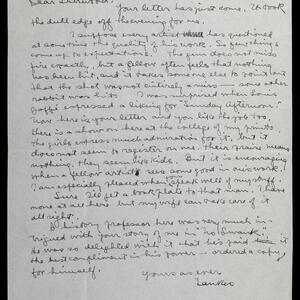 Dear Linwood:
Your letter has just come. It took
the dull edge off the evening for me.
I suppose every artist has questioned
at sometime the quality of his work. So few things
come up to expectations. The gun does not miss
fire exactly, but a fellow often feels that nothing
has been hit, and it takes someone else to point out
that the shot was not entirely a miss — some other
rabbit was hit. I was surprised when Louis
expressed a liking for "Sunday afternoon."
Now here is your letter and you hit the job too.
there is a show on here at the college of my prints
the girls express much admiration for it. But it
does not seem to register on me. Their praise means
nothing, they seem like kids. But it is encouraging
when a fellow artist sees some good in one's work.
I am especially pleased when you speak well of my stuff.
Sure I'll get a book plate to that man. I have
none at all here but my wife can take care of it
all right.
A history professor here was very much in-
trigued with your story of me in "
He was so delighted with it that he's paid it
the best compliment in his power — ordered a copy
for himself.
Yours as ever
Lankes